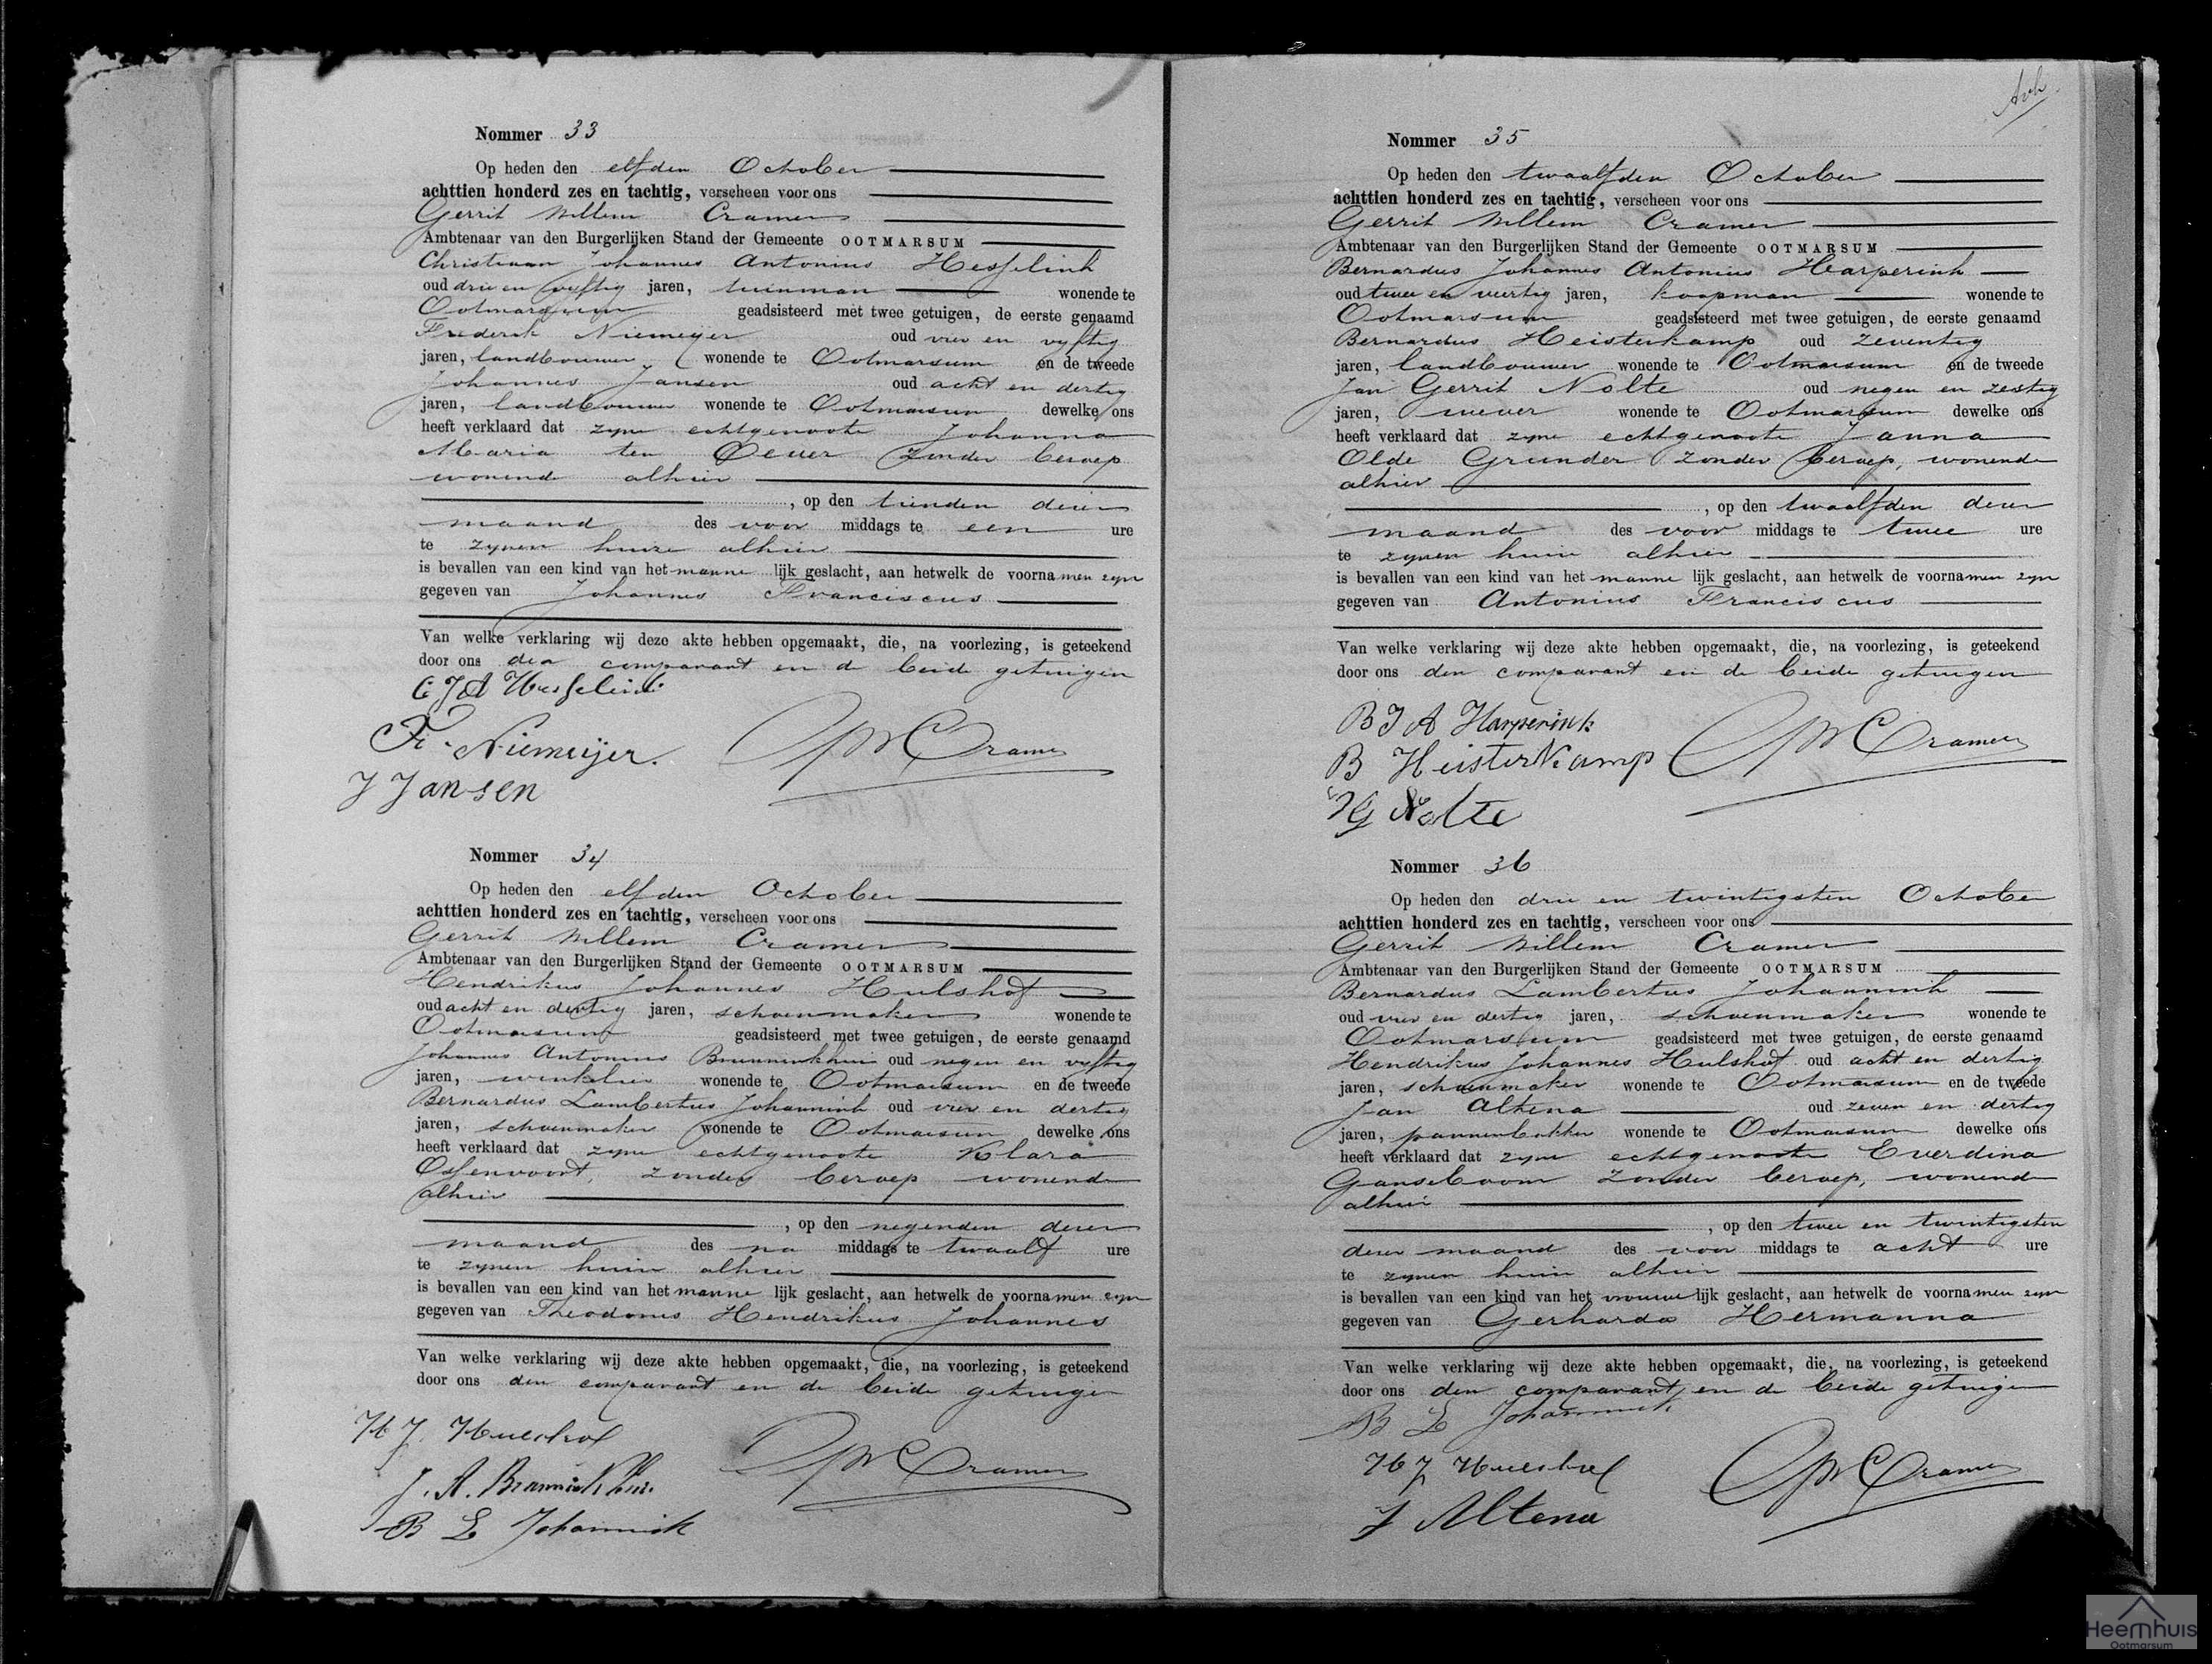 Nommer 33
Op heden den elfden October
achttien honderd zes en tachtig, verscheen voor ons
Gerrit Willem Cramer
Ambtenaar van den Burgerlijken Stand der Gemeente OOTMARSUM
Christiaan Johannes Antonius Hesselink
oud drie en vyftig jaren, tuinman wonende te
Ootmarsum geadsisteerd met twee getuigen, de eerste genaamd
Frederik Niemeyer oud vier en vyftig
jaren, landbouwer wonende te Ootmarsum en de tweede
Johannes Jansen oud acht en dertig
jaren, landbouwer wonende te Ootmarsum dewelke ons
heeft verklaard dat zyne echtgenoote Johanna
Maria ten Oever zonder beroep
wonende alhier
, op den tienden dezer
maand des voor middags te een ure
te zynen huize alhier
is bevallen van een kind van het mannelijk geslacht, aan hetwelk de voornamen zyn
gegeven van Johannes Franciscus
Van welke verklaring wij deze akte hebben opgemaakt, die, na voorlezing, is geteekend
door ons den comparant en de beide getuigen
C J A Hesselink
Fr. Niemeijer.
GWCramer
J Jansen
Nommer 34
Op heden den elfden October
achttien honderd zes en tachtig, verscheen voor ons
Gerrit Willem Cramer
Ambtenaar van den Burgerlijken Stand der Gemeente OOTMARSUM
Hendrikus Johannes Hulshof
oud acht en dertig jaren, schoenmaker wonende te
Ootmarsum geadsisteerd met twee getuigen, de eerste genaamd
Johannes Antonius oud negen en vyftig
jaren, winkelier wonende te Ootmarsum en de tweede
Bernardus Lambertus Johannink oud vier en dertig
jaren, schoenmaker wonende te Ootmarsum dewelke ons
heeft verklaard dat zyne echtgenoote Klara
Ossenvoort, zonder beroep wonende
alhier
, op den negenden dezer
maand des na middags te twaalf ure
te zynen huize alhier
is bevallen van een kind van het mannelijk geslacht, aan hetwelk de voornamen zyn
gegeven van Theodorus Hendrikus Johannes
Van welke verklaring wij deze akte hebben opgemaakt, die, na voorlezing, is geteekend
door ons den comparant en de beide getuigen
H J Hulshof
GWCramer
J. A.
B L Johannink
Nommer 35
Op heden den twaalfden October
achttien honderd zes en tachtig, verscheen voor ons
Gerrit Willem Cramer
Ambtenaar van den Burgerlijken Stand der Gemeente OOTMARSUM
Bernardus Johannes Antonius Harperink
oud twee en veertig jaren, koopman wonende te
Ootmarsum geadsisteerd met twee getuigen, de eerste genaamd
Bernardus Heisterkamp oud zeventig
jaren, landbouwer wonende te Ootmarsum en de tweede
Jan Gerrit Nolte oud negen en zestig
jaren, wever wonende te Ootmarsum dewelke ons
heeft verklaard dat zyne echtgenoote Janna
Olde Grunder zonder beroep, wonende
alhier
, op den twaalfden dezer
maand des voor middags te twee ure
te zynen huize alhier
is bevallen van een kind van het mannelijk geslacht, aan hetwelk de voornamen zyn
gegeven van Antonius Franciscus
Van welke verklaring wij deze akte hebben opgemaakt, die, na voorlezing, is geteekend
door ons den comparant en de beide getuigen
B J A Harperink
B Heisterkamp
GWCramer
JG Nolte
Nommer 36
Op heden den drie en twintigsten October
achttien honderd zes en tachtig, verscheen voor ons
Gerrit Willem Cramer
Ambtenaar van den Burgerlijken Stand der Gemeente OOTMARSUM
Bernardus Lambertus Johannink
oud vier en dertig jaren, schoenmaker wonende te
Ootmarsum geadsisteerd met twee getuigen, de eerste genaamd
Hendrikus Johannes Hulshof oud acht en dertig
jaren, schoenmaker wonende te Ootmarsum en de tweede
Jan Altena oud zeven en dertig
jaren, pannenbakker wonende te Ootmarsum dewelke ons
heeft verklaard dat zyne echtgenoote Everdina
Ganseboom zonder beroep, wonende
alhier
, op den twee en twintigsten
dezer maand des voor middags te acht ure
te zynen huize alhier
is bevallen van een kind van het vrouwelijk geslacht, aan hetwelk de voornamen zyn
gegeven van Gerharda Hermanna
Van welke verklaring wij deze akte hebben opgemaakt, die, na voorlezing, is geteekend
door ons den comparant en de beide getuigen
B L Johannink
H J Hulshof
GWCramer
J Altena
Heemhuis
Ootmarsum